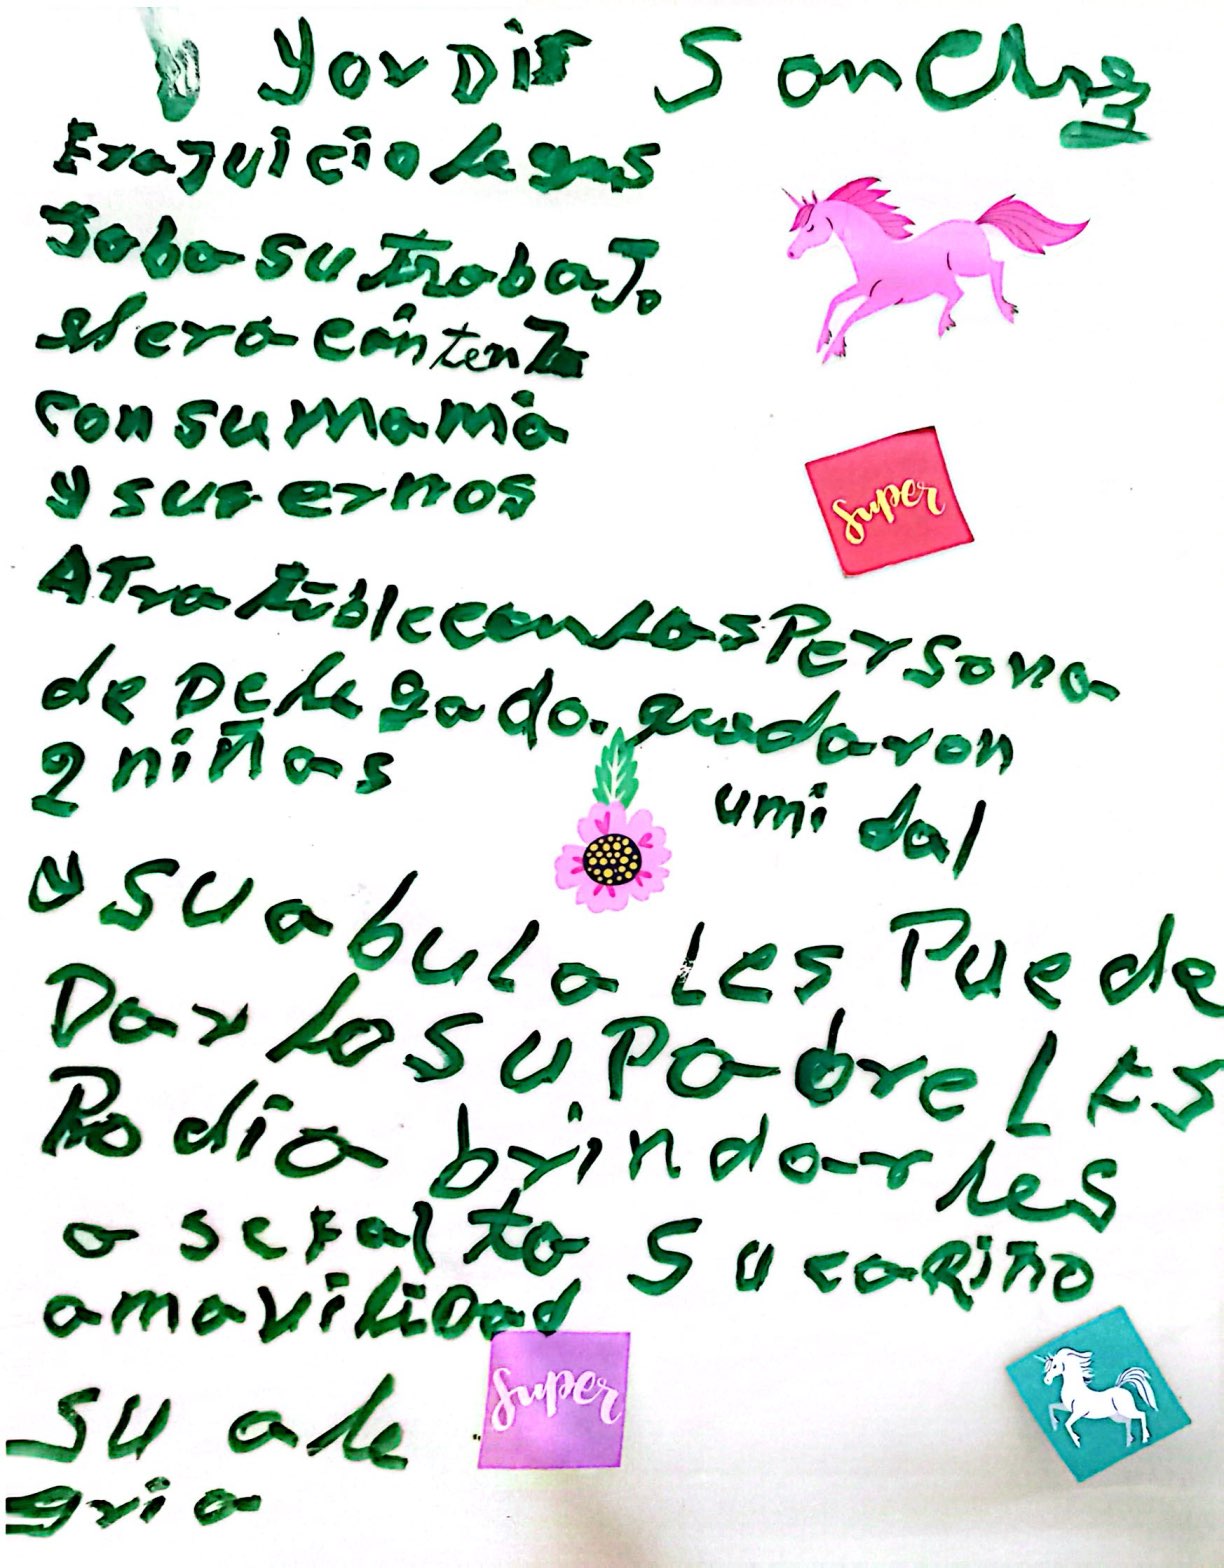 Yordis Sanchez
Erajuicio le gus
Taba su trabaJo
el era contento
con su mamá
y sus ermos
ATratible con Las Persona
de Delegado. quedaron
2 niñas
umidal
y su abula Les Puede
Dar Lo su Pabre Les
Podia brindarles
a se falta Su cariño
amavilidad
Su ale
gria
Super
Super